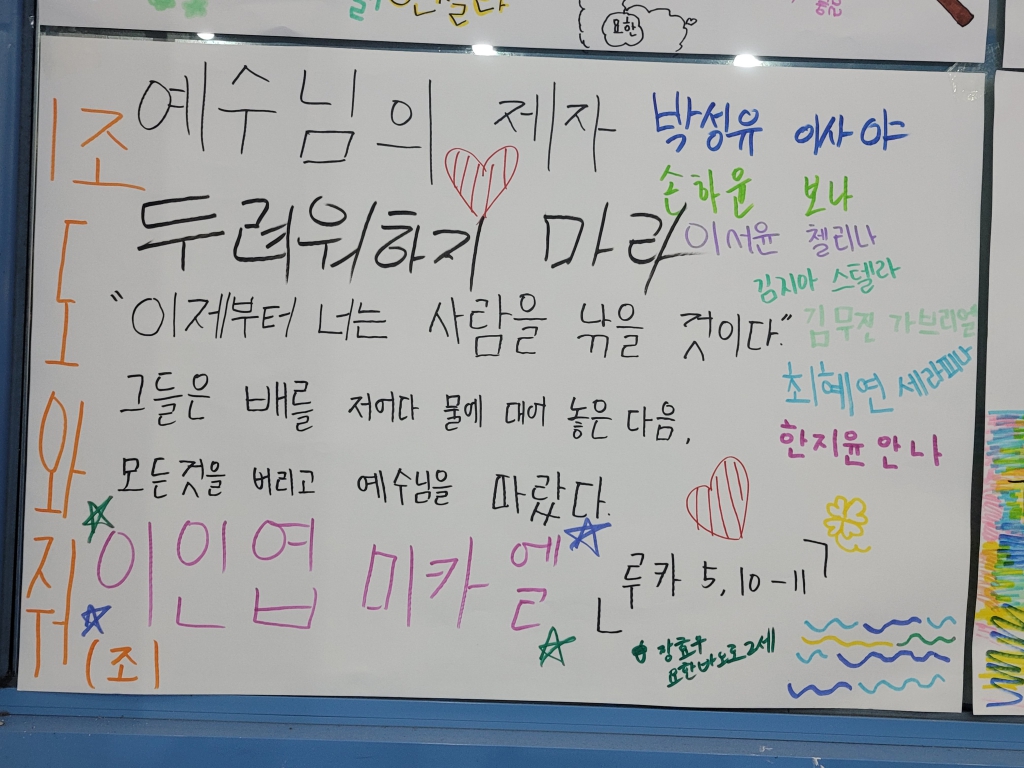 요한
1조
도와줘
(조)
예수님의 제자
두려워하지 마라
"이제부터 너는 사람을 낚을 것이다."
그들은 배를 저어다 물에 대어 놓은 다음,
모든것을 버리고 예수님을 따랐다.
이인엽 미카엘
「루카 5, 10-11」
박성유 이사야
손하윤 보나
이서윤 첼리나
김지아 스텔라
김무진 가브리엘
최혜연 세라피나
한지윤 안나
장효우
요한바오로2세